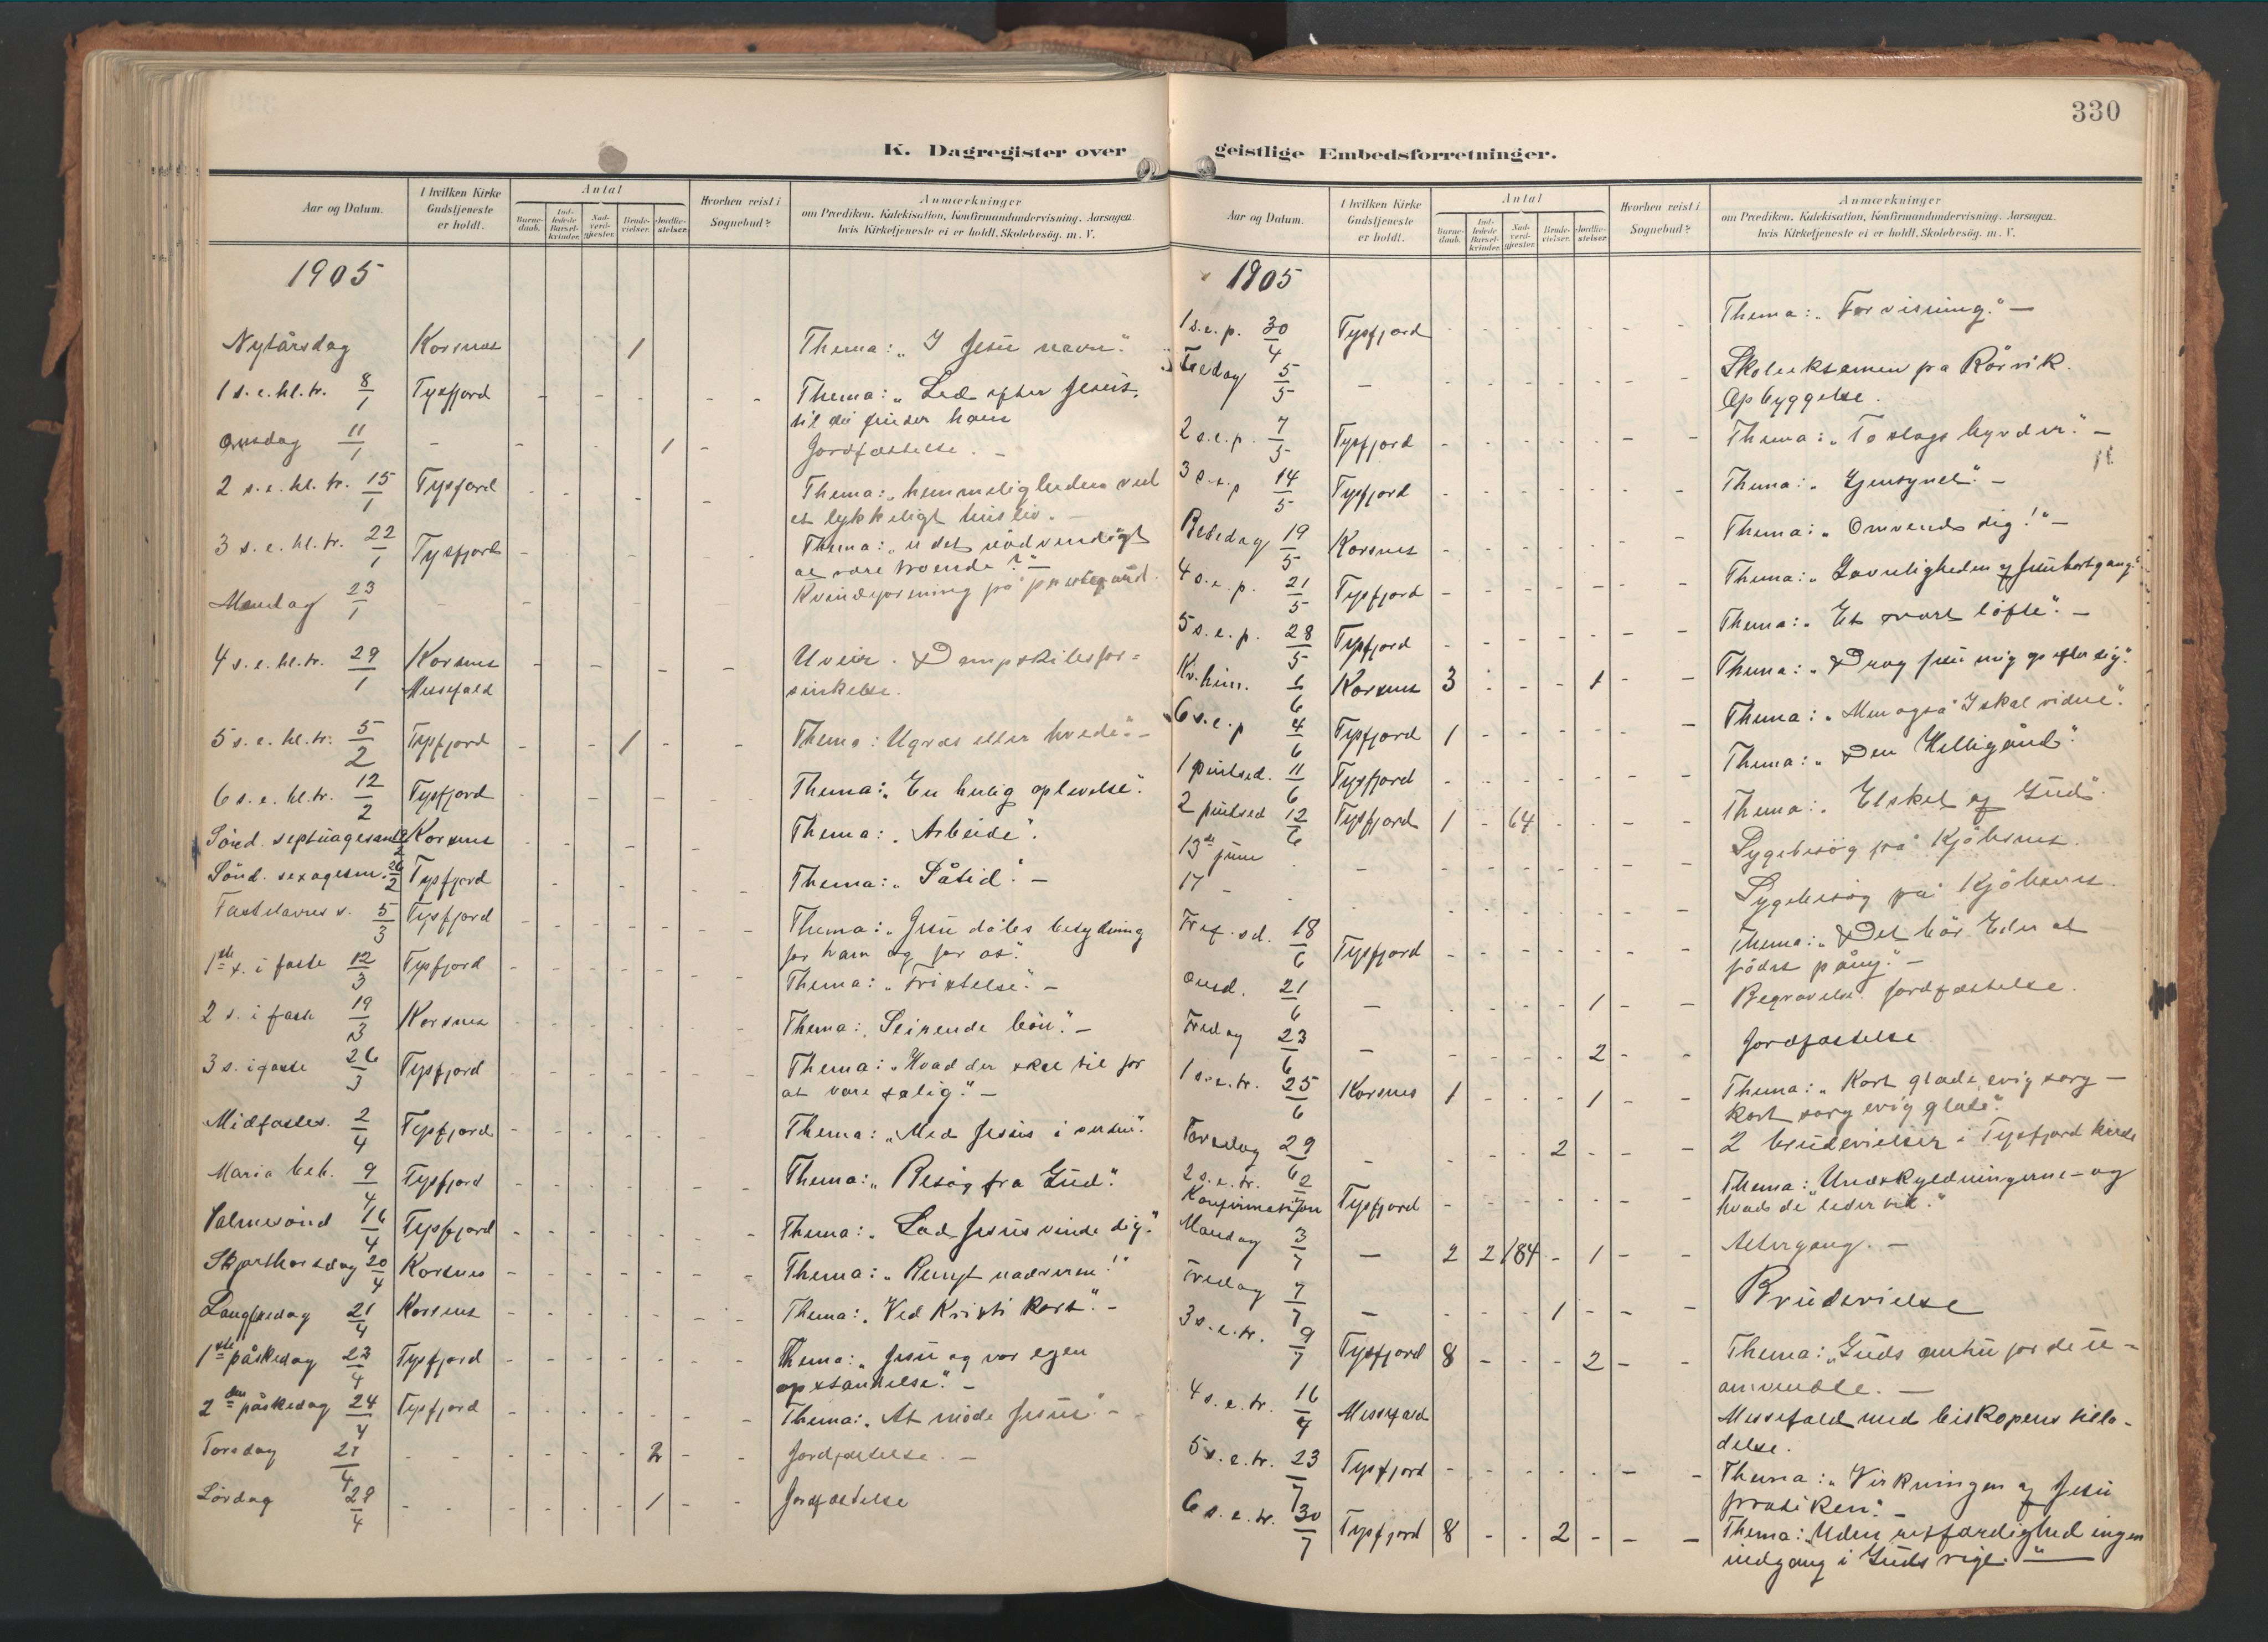 330
K. Dagregister over geistlige Embedsforretninger.
Aar og Datum. I hvilken Kirke Gudstjeneste er holdt. Antal Barne-daab. Ind-ledede Barsel-kvinder. Nad-verd-gjester. Brude-vielser. Jordfæ-stelser. Hvorhen reist i Sognebud? Anmærkninger om Prædiken, Katekisation, Konfirmandundervisning, Aarsagen, hvis Kirketjeneste ei er holdt, Skolebesög, m. V.
1905
Nytårsdag Korsnes 1 Thema: „I Jesu navn“.
1 s. e. hl. tr. 8/1 Tysfjord - - - - Thema: „Led efter Jesus,
til du finder ham
Onsdag 11/1 - - 1 - Jordfæstelse. -
2 s. e. hl. tr. 15/1 Tysfjord - - - - - Thema: „hemmeligheden ved
et lykkeligt husliv. -
3 s. e. hl. tr. 22/1 Tysfjord - - - - Thema: „er det nödvendigt
at være troende?“ -
Mandag 23/1 - - - - Kvindeforening på prestegård.
4 s. e. hl. tr. 29/1 Korsnes - - - - Uveir. Dampskibsfor=
Messefald sinkelse.
5 s. e. hl. tr. 5/2 Tysfjord - - - 1 - - Thema: Ugræs eller hvede“ -
6 s. e. hl. tr. 12/2 Tysfjord - - - - Thema: „En herlig oplevelse“.
Sönd. septuagesima 19/2 Korsnes - - - - Thema: „Arbeide“.
Sönd. sexagesm. 26/2 Tysfjord - - - - Thema: „Såtid“. -
Fastelavns s. 5/3 Tysfjord - - - - - Thema: „Jesu dåbs betydning
for ham og for os“.
1ste s. i faste 12/3 Tysfjord - - - - - Thema: „Fristelse“. -
2 s. i faste 19/3 Korsnes - - - - - Thema: „Seirende bön“. -
3 s. i faste 26/3 Tysfjord - - - - - Thema: „Hvad der skal til for
at være salig“. -
Midfastes. 2/4 Tysfjord - - - - - Thema: „Med Jesus i
Maria beb. 9/4 Tysfjord - - - - - Thema: „Besög fra Gud“.
Palmesönd 16/4 Tysfjord - - - - - Thema: „Lad Jesus vinde dig“.
Skjærthorsdag 20/4 Korsnes - - - - - Thema: „Benyt nadveren!“
Langfredag 21/4 Korsnes - - - - - Thema: „Ved Kristi kors“. -
1ste påskedag 23/4 Tysfjord - - - - - Thema: „Jesu og vor egen
opstandelse“. -
2den påskedag 24/4 Tysfjord - - - - - Thema: „At möde Jesus“ -
Torsdag 27/4 - - - - 2 - - Jordfæstelse. -
Lördag 29/4 - - - - 1 - - Jordfæstelse
Aar og Datum. I hvilken Kirke Gudstjeneste er holdt. Antal Barne-daab. Ind-ledede Barsel-kvinder. Nad-verd-gjester. Brude-vielser. Jordfæ-stelser. Hvorhen reist i Sognebud? Anmærkninger om Prædiken, Katekisation, Konfirmandundervisning, Aarsagen, hvis Kirketjeneste ei er holdt, Skolebesög, m. V.
1905
1 s. e. p. 30/4 Tysfjord - - - - - - - Thema: „Forvisning“. -
Fredag 5/5 - - - - - - - - Skoleeksamen på Rörvik.
Opbyggelse.
2 s. e. p. 7/5 Tysfjord - - - - - - - Thema: „To slags hyrder“. -
3 s. e. p 14/5 Tysfjord - - - - - - - Thema: „Gjensynet“. -
Bededag 19/5 Korsnes - - - - - - - Thema: „Omvend dig!“ -
4 s. e. p. 21/5 Tysfjord - - - - - - - Thema: „Gavnligheden af Jesu bortgang“.
5 s. e. p. 28/5 Tysfjord - - - - - - - Thema: „Et stort löfte“. -
Kr. him. 1/6 Korsnes 3 - - - 1 - - Thema: „Drag Jesu mig op efter dig“.
6 s. e. p 4/6 Tysfjord 1 - - - - - - Thema: „Men også I skal vidne“.
1 pintsed. 11/6 Tysfjord - - - - - - - Thema: „Den Helligånd“.
2 pintsed 12/6 Tysfjord 1 - 64 - - - - Thema: „Elsket af Gud“.
13de juni - - - - - - - Sygebesög på Kjöbsnes.
17 - - - - - - - - Sygebesög på Kjöbsnes.
Tref. sd. 18/6 Tysfjord - - - - - - - Thema: „Det bör Eder at
födes påny“. -
Onsd. 21/6 - - - - - 1 - - Begravelse. Jordfæstelse.
Fredag 23/6 - - - - - 2 - - Jordfæstelse
1 s. e. tr. 25/6 Korsnes 1 - - - 1 - - Thema: „Kort glæde, evig sorg -
kort sorg evig glæde“.
Torsdag 29/6 - - - - 2 - - - 2 brudevielser i Tysfjord kirke
2 s. e. tr. 2
Konfirmation Tysfjord - - - - - - - Thema: „Undskyldningerne - og
hvad de leder til“.
Mandag 3/7 - 2 2 184 - 1 - - Altergang. -
Fredag 7/7 - - - - 1 - - - Brudevielse
3 s. e. tr. 9/7 Tysfjord 8 - - - 2 - - Thema: „Guds omhu for de u-
omvendte. -
4 s. e. tr. 16/7 Messefald Messefald med biskopens tilla-
delse.
5 s. e. tr. 23/7 Tysfjord - - - - - - - Thema: „Virkningen af Jesu
prædiken“. -
6 s. e. tr. 30/7 Tysfjord 8 - - 2 - - - Thema: „Uden retfærdighed ingen
indgang i Guds rige. “ -